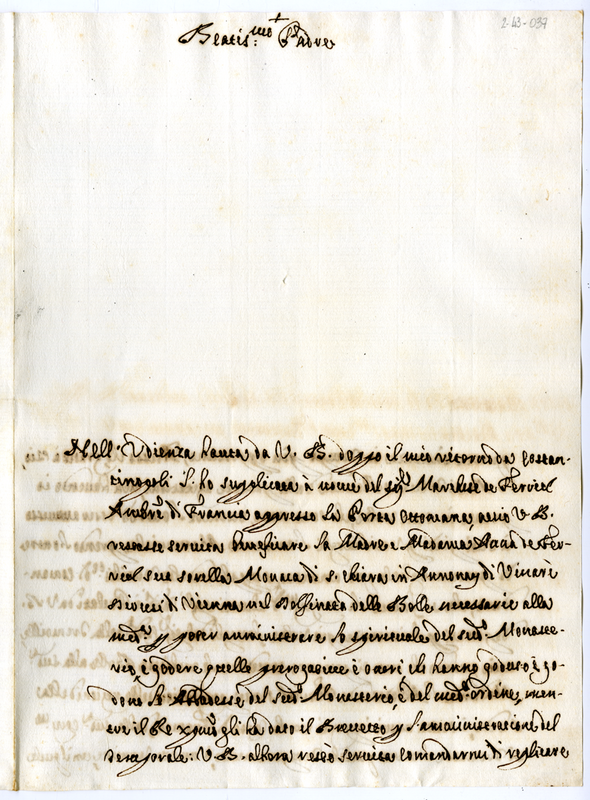 2-43-037
+
Beatis.mo Padre
Nell'Udienza hauta da V. B. doppo il mio ritorno da Costan-
tinopoli l'ho supplicata à nome del sig.r Marchese de Ferriol
Ambre. di Francia appresso la Porta Ottomana, acciò V. B.
restasse servita beneficiare la Madre e Madama Anna de Fer-
riol sua sorella Monaca di S. Chiara in Annonay di Vivarè
Diocesi di Vienna nel Delfinato delle Bolle necessarie alla
med.a p poter amministrare lo spirituale del sud.o Monaste-
rio, è godere quelle prerogative è onori ch'hanno goduto è go-
dono le Abbadesse del sud.o Monasterio, è del med.o ordine, men-
tre il Re xpmo gli ha dato il Brevetto p l'amministratione del
temporale: V. B. alhora restò servita comandarmi di replicare